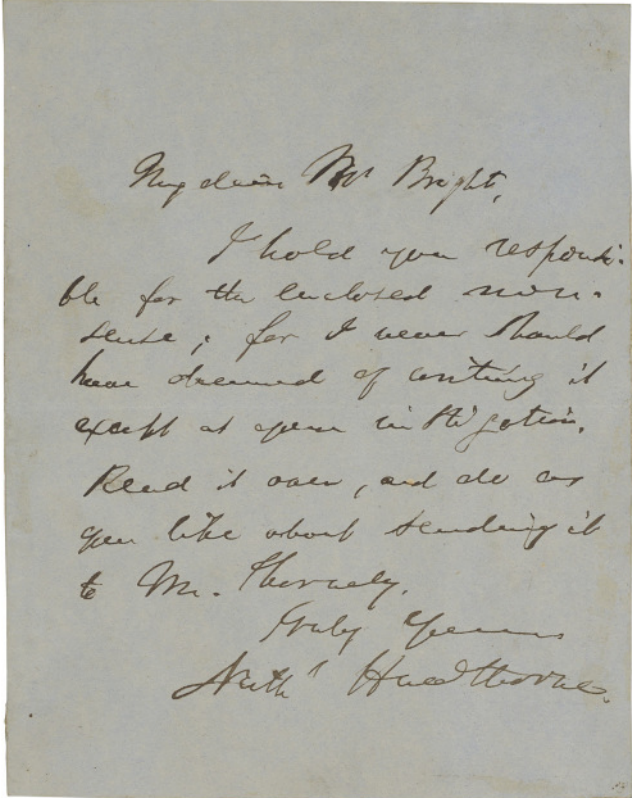 My dear Mr Bright,
I hold you responsi-
ble for the enclosed non-
sense; for I never should
have dreamed of writing it
except at your instigation.
Read it over, and do as
you like about sending it
to Mr. Thornely.
Truly Yours
Nathl Hawthorne.